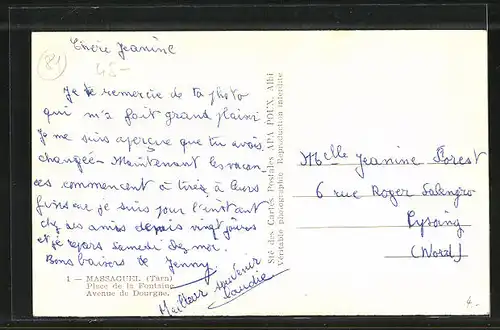 Chère Jeanine
(81)
45-
Je te remercie de ta photo
qui m'a fait grand plaisir
Je me suis aperçue que tu avais
changée - Maintenant les vacan-
ces commencent à tirer à leurs
fins car je suis pour l'instant
chez des amies depuis vingt jours
et je repars samedi chez mer.
Bons baisers de Jenny
Meilleur souvenir
Claudie
1 — MASSAGUEL (Tarn)
Place de la Fontaine
Avenue de Dourgne.
Sté des Cartes Postales APA POUX, Albi
Véritable photographie Reproduction interdite
Mlle Jeanine Florest
6 rue Roger Salengro
Cysoing
(Nord)
4.-